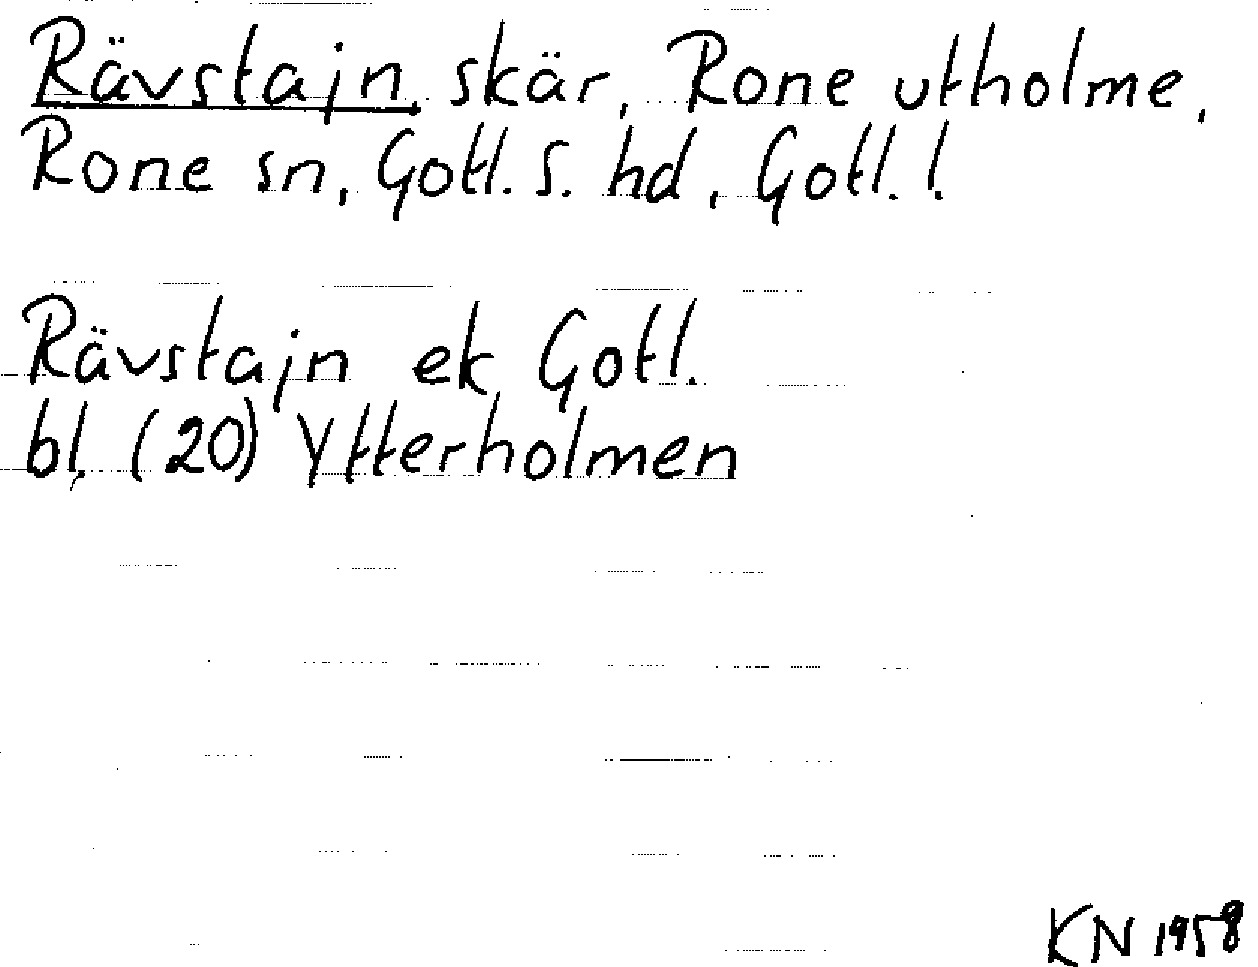 Rävstajn, skär, Rone utholme,
Rone sn, Gotl. S. hd, Gotl. l.
Rävstajn ek Gotl.
bl. (20) Ytterholmen
KN 1958